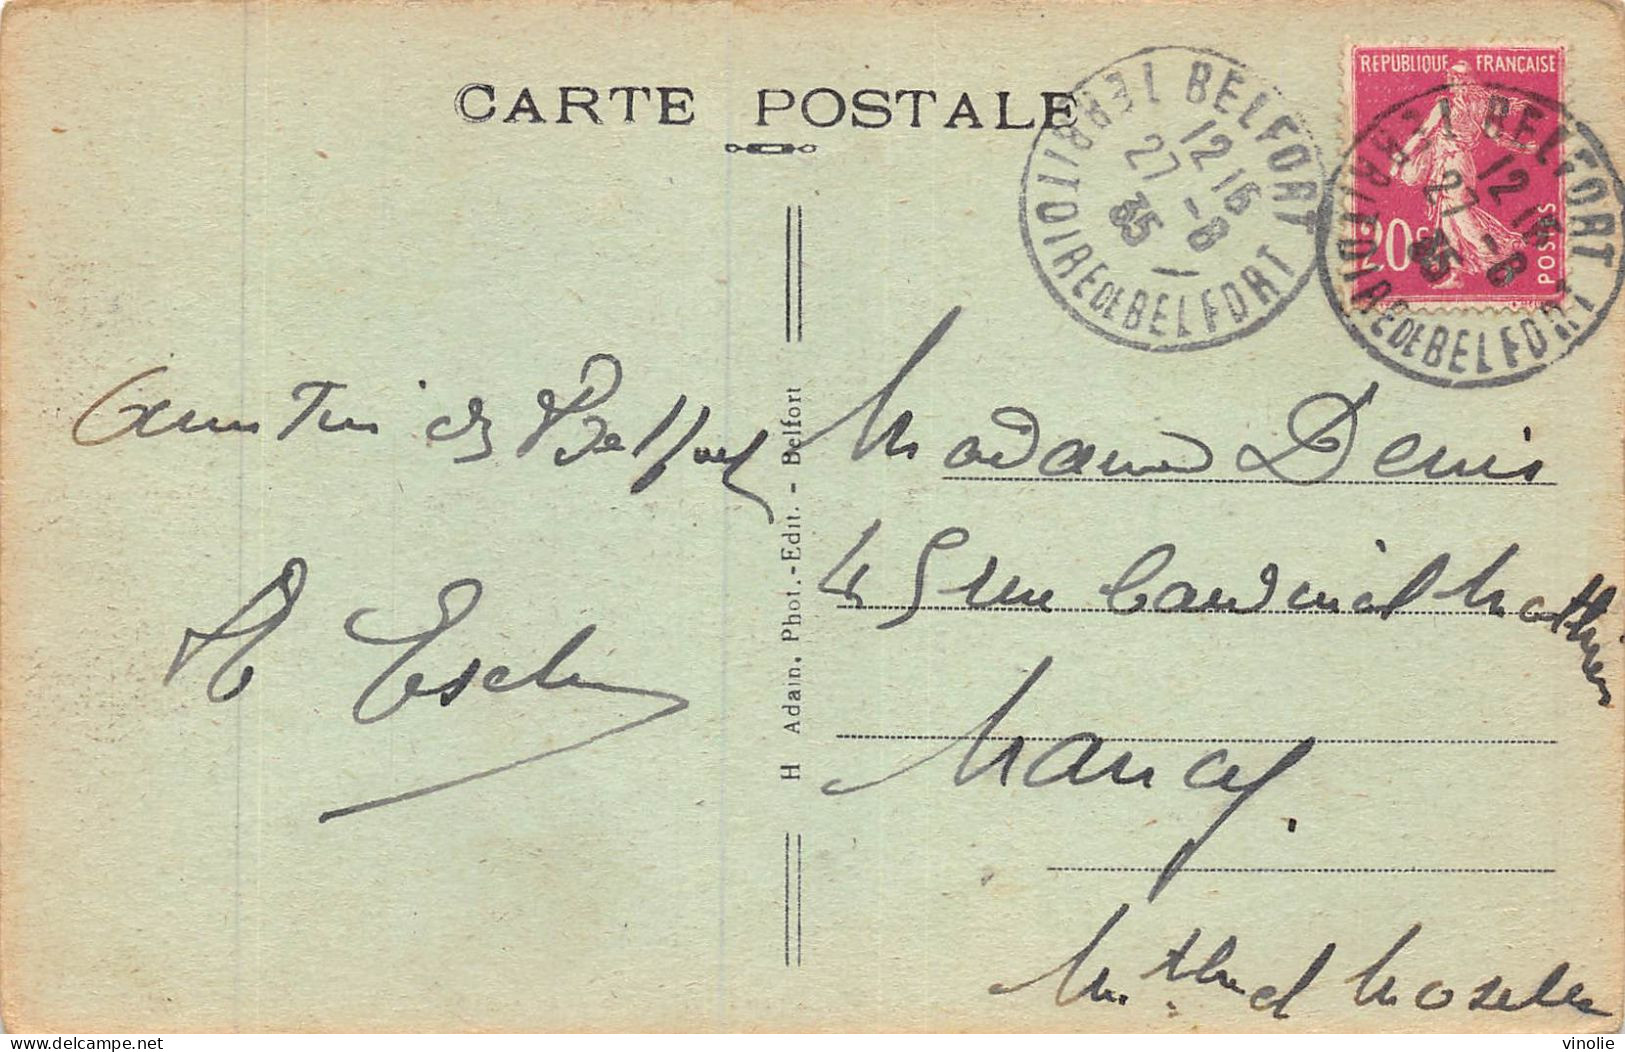 CARTE POSTALE
REPUBLIQUE FRANÇAISE
20c
POSTES
BELFORT
TERRITOIRE DE BELFORT
12 16
27 -8
35
BELFORT
TERRITOIRE DE BELFORT
12 16
27 -8
35
de Belfort
H Adain, Phot.-Edit. - Belfort
Madame Denis
45 rue Cardinal Mathieu
Nancy.
Mrthe et Moselle
vinolie